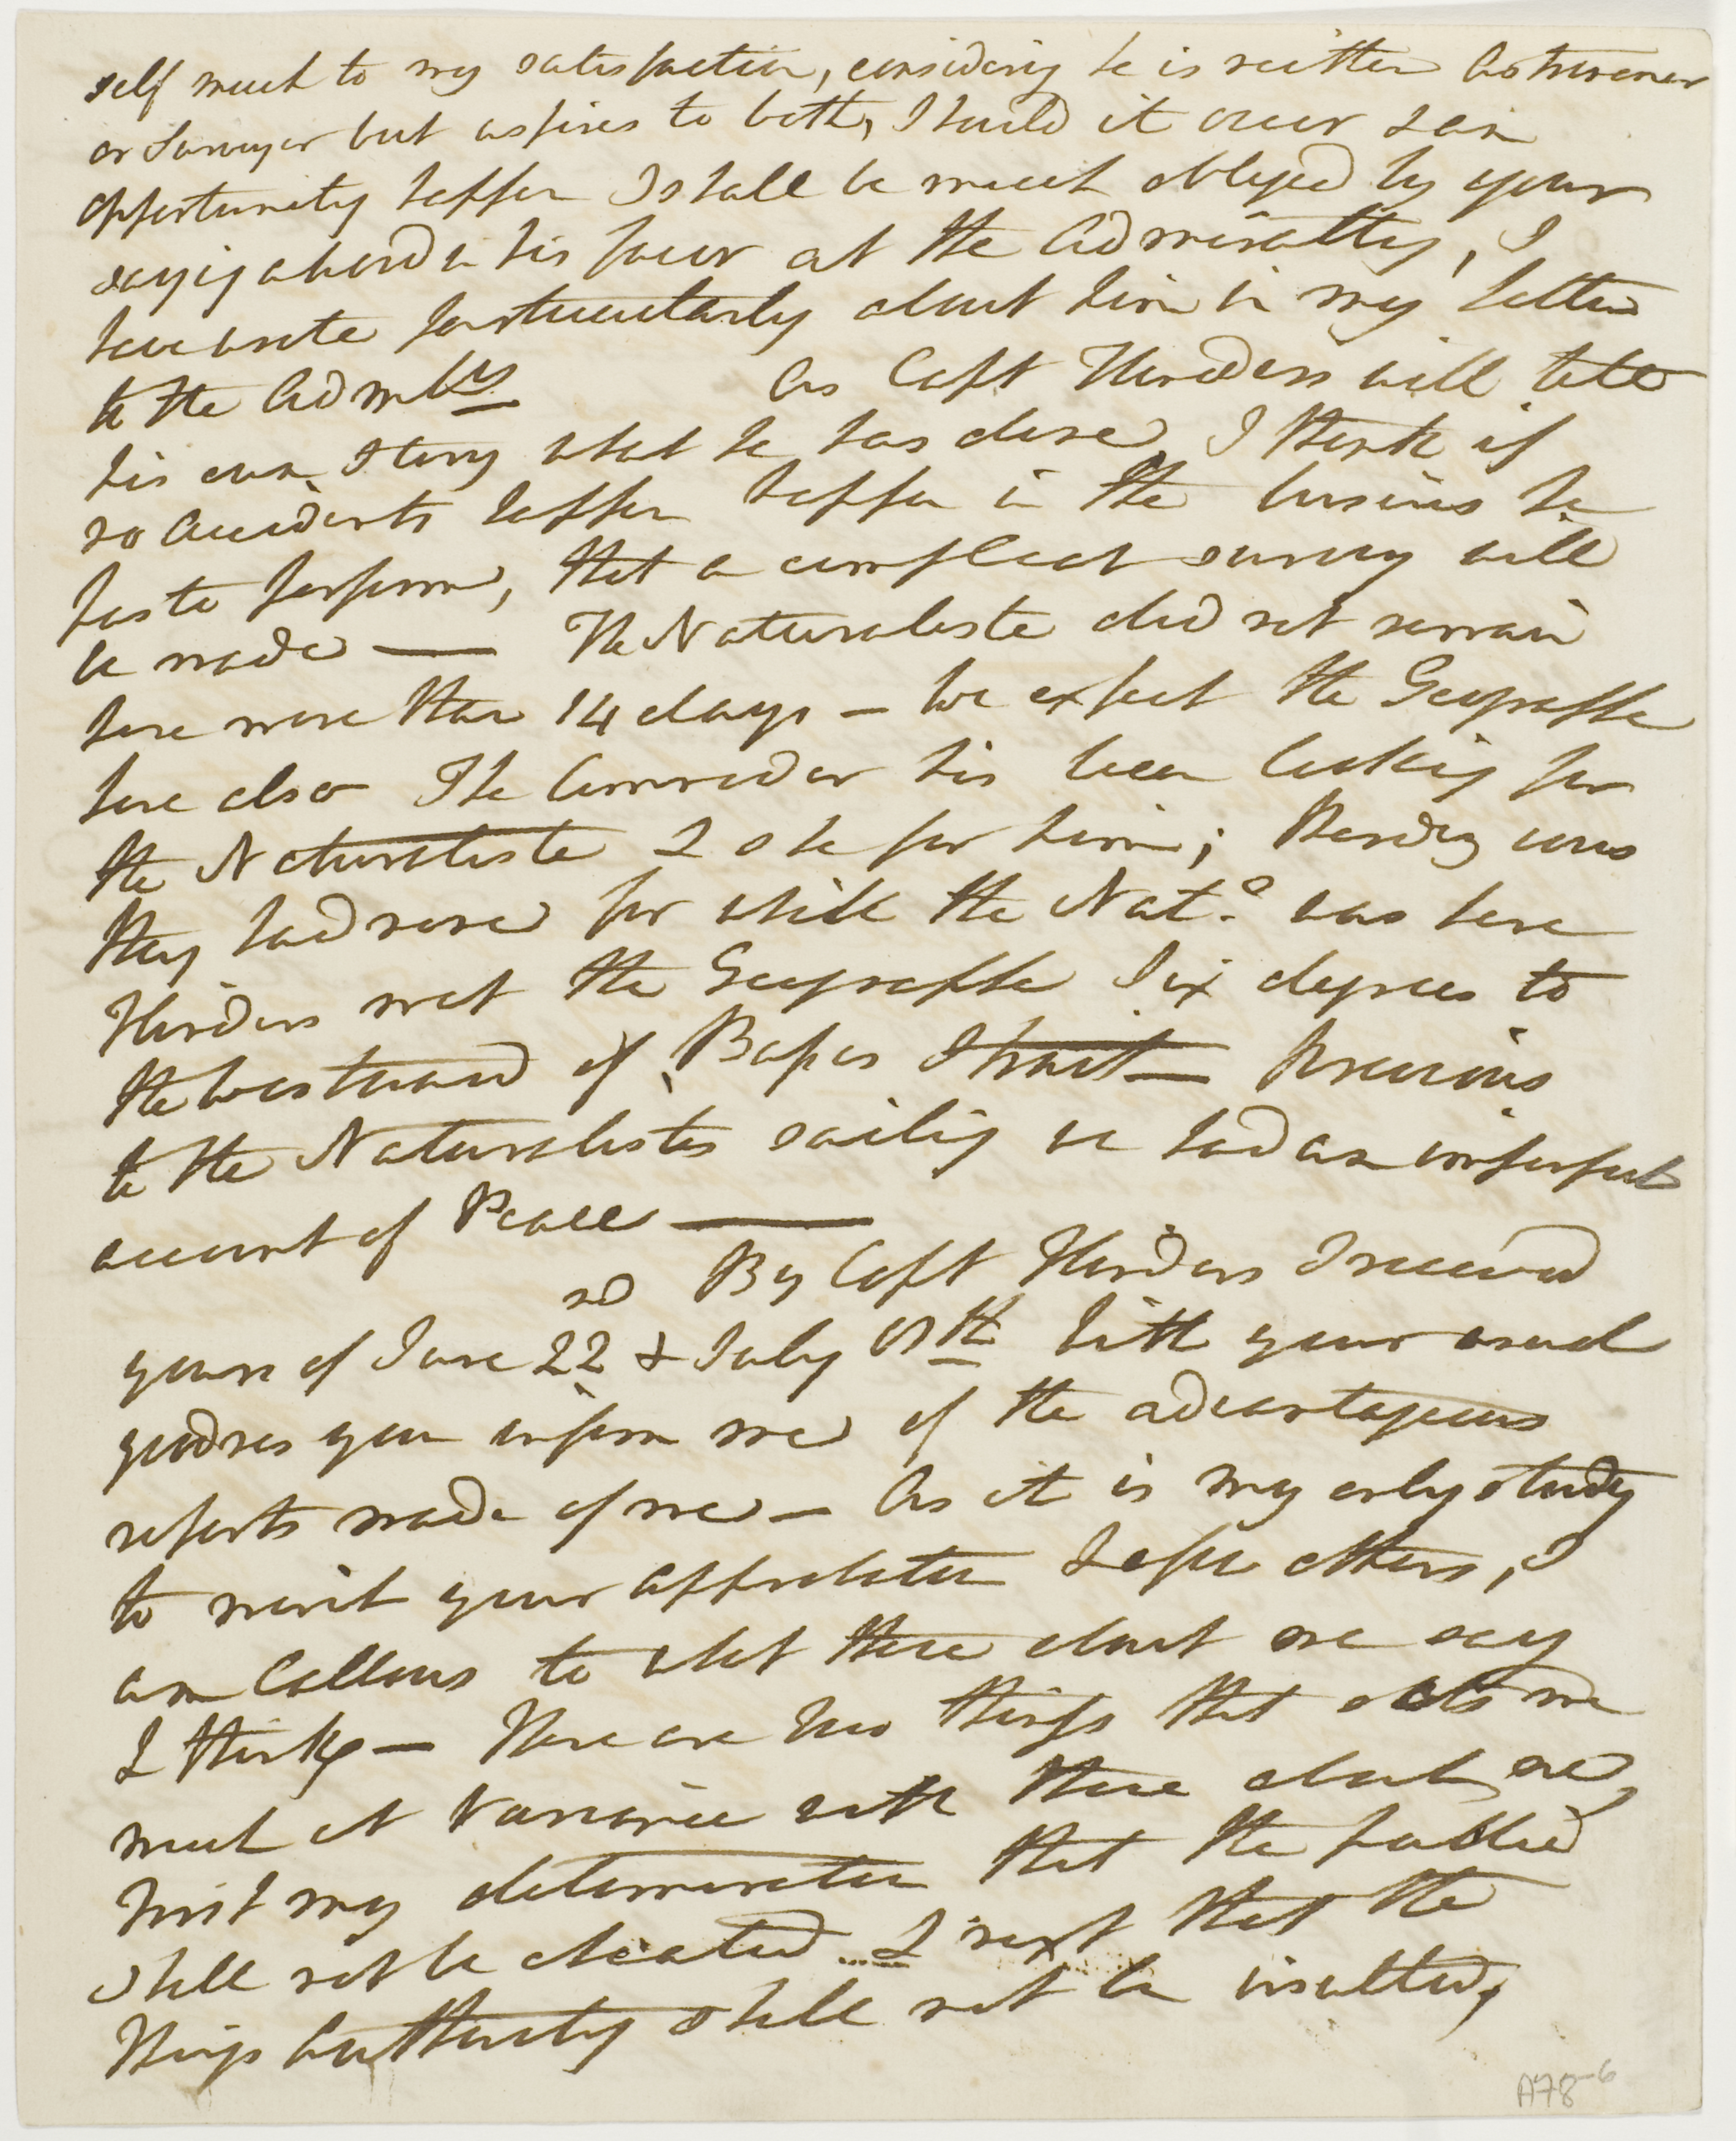 self much to my satisfaction, considering he is neither Astronomer
or Surveyor but aspires to both, Should it ever
opportunity happen I shall be much obliged by your
saying a word in his favor at the Admiralty, I
have wrote particularly about him in my letter
to the Admlty
As Capt Flinders will tell
his own Story what he has done, I think if
no Accidents happen happen in the business he
has to perform, that a compleat survey will
be made — The Naturaliste did not remain
here more than 14 days – We expect the Geographe
here also The Commodor his been looking for
the Naturaliste & she for him; Rendezvous
they had none for while the Nat.e was here
Flinders met the Geographe Six degrees to
the Westward of Basses Strait — Previous
to the Naturalistes sailing we had an imperfect
account of Peace —
nd By Capt Flinders I received
yours of June 22 & July th With your usual
goodness you inform me of the advantageous
reports made of me – As it is my only study
to merit your approbation & a few others, I
am Callous to what those about me say
& think – There are two things that sets me
much at Variance with those about me,
First my determination that the public
shall not be cheated & next that the
Kings Authority shall not be insulted,
A78-6